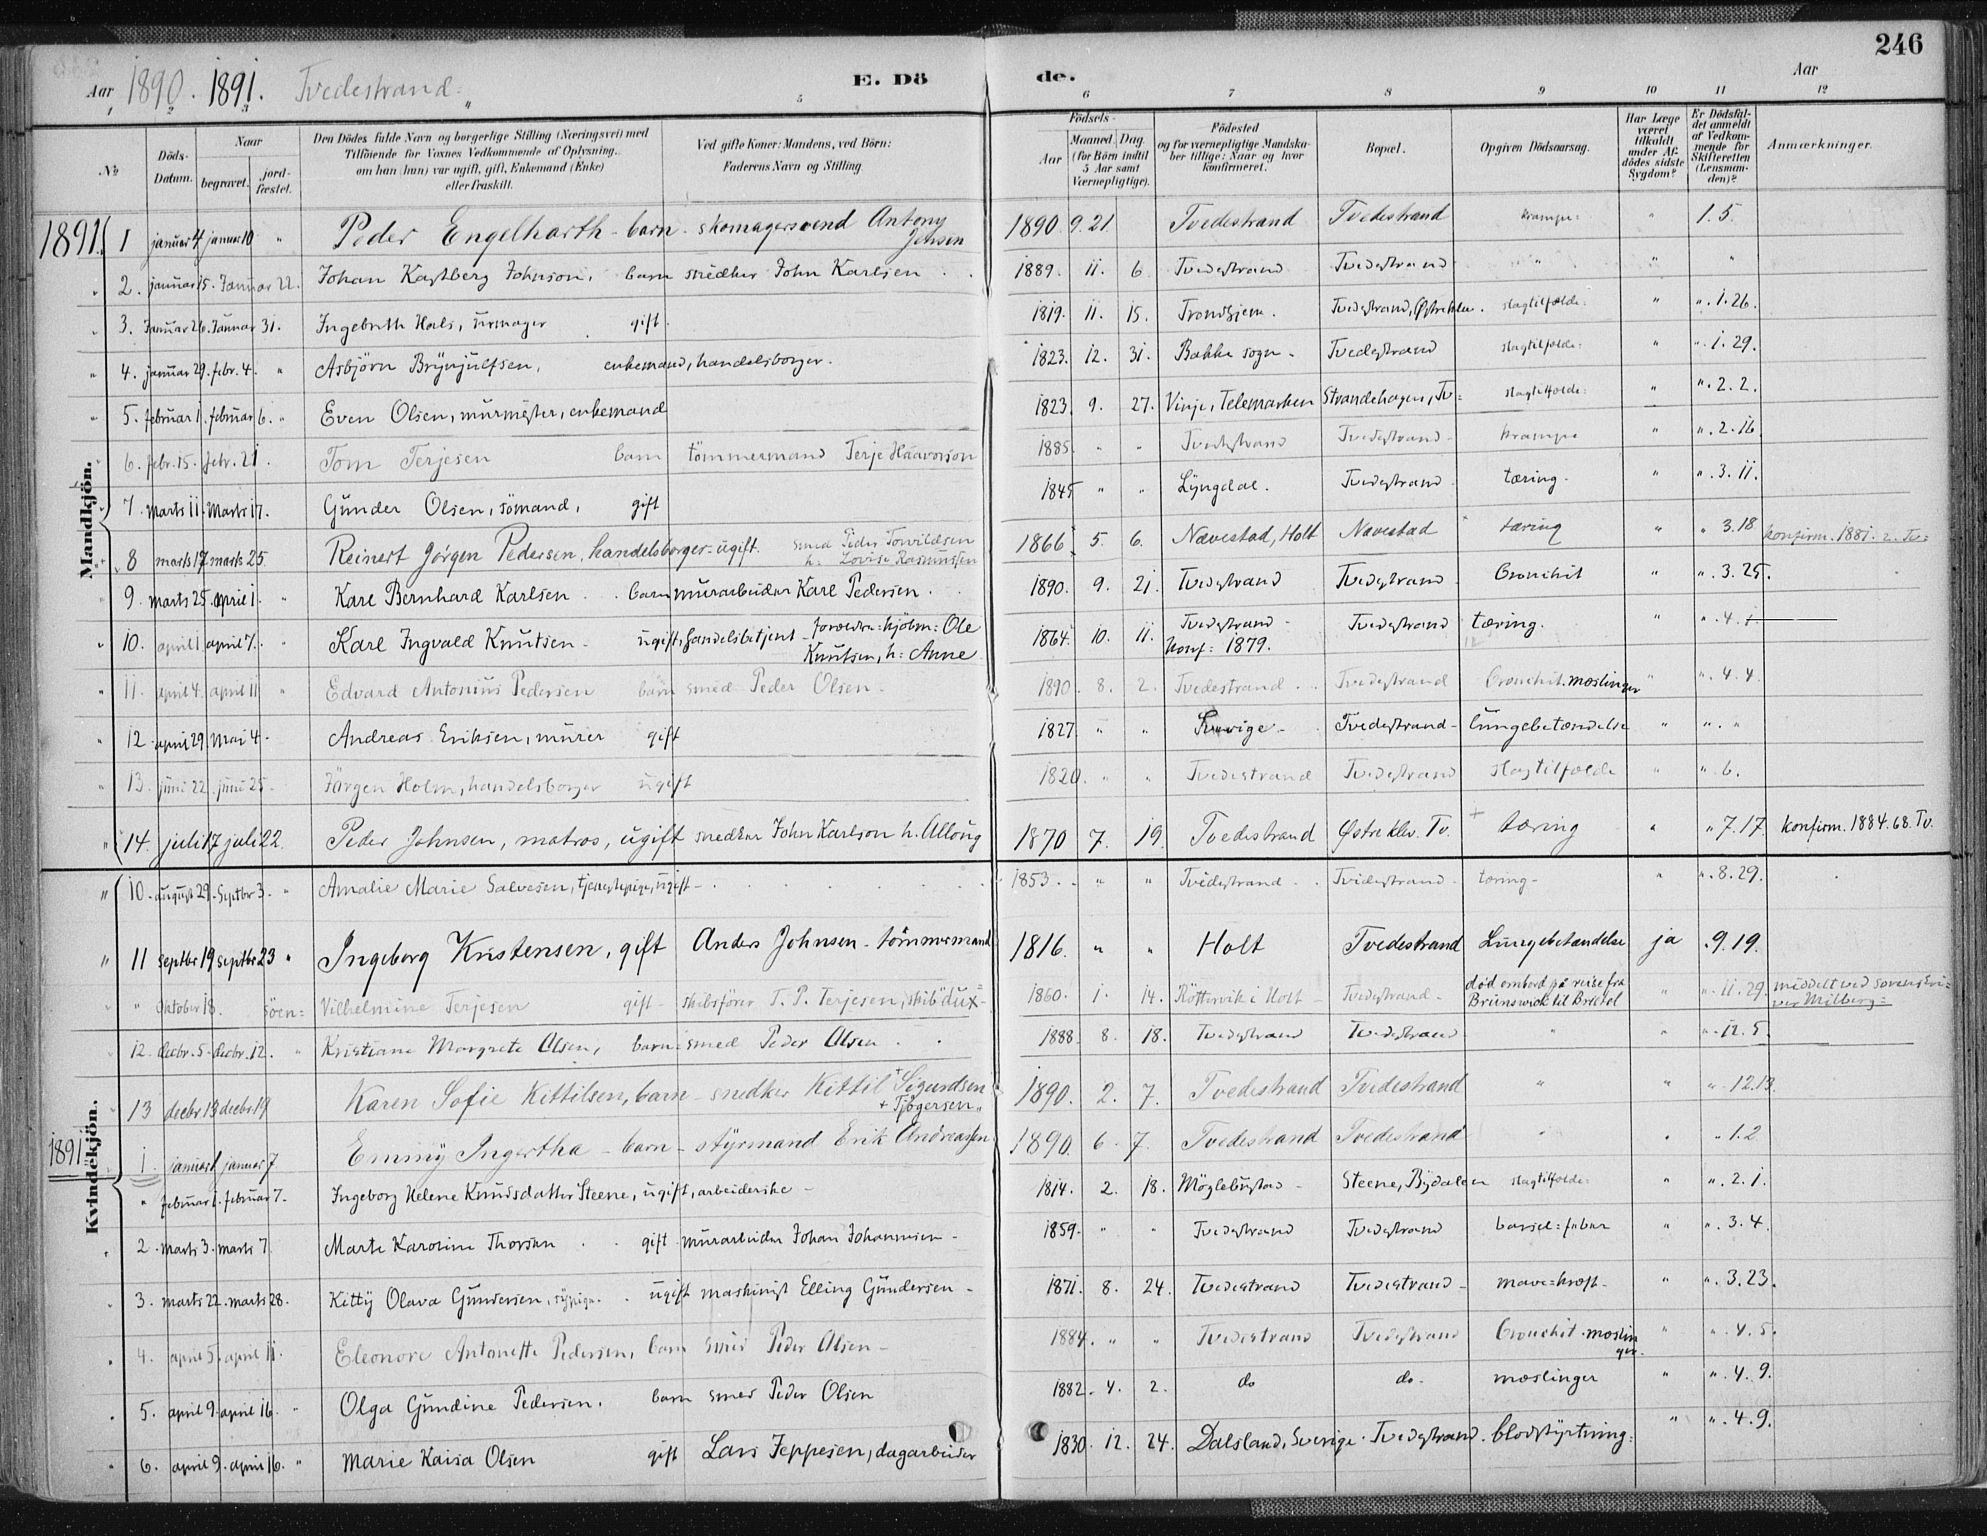 246
Aar 1890. 1891. Tvedestrand. E. Dö de. Aar
1 2 3 5 6 7 8 9 10 11 12
No Döds-Datum. Naar begravet. jordfæstet. Den Dödes fulde Navn og borgerlige Stilling (Næringsvei) med Tilföiende for Voxnes Vedkommende af Oplysning, om han (hun) var ugift, gift, Enkemand (Enke) eller fraskilt. Ved gifte Koner: Mandens, ved Börn: Faderens Navn og Stilling. Födsels- Aar Maaned. Dag. (for Börn indtil 5 Aar samt Værnepligtige). Födested og for værnepligtige Mandskaber tillige: Naar og hvor konfirmeret. Bopæl. Opgiven Dödsaarsag. Har Læge været tilkaldt under Afdödes sidste Sygdom? Er Dödsfaldet anmeldt af Vedkommende for Skifteretten (Lensmanden)? Anmærkninger.
Mandkjön.
1891. 1 januar 4 januar 10 " Peder Engelharth - barn - skomagersvend Antony Johsen 1890 9. 21. Tvedestrand Tvedestrand krampe: " 1. 5.
" 2. januar 15. Januar 22. Johan Kastberg Johnson, barn snedker John Karlsen 1889. 11. 6. Tvedestrand Tvedestrand " " "
" 3. Januar 26. Januar 31. Ingebrith Hals, urmager gift. 1819. 11. 15. Trondhjem. Tvedestrand, Østreklev. slagtilfælde: " ". 1. 26.
" 4. januar 29. febr. 4. " Asbjörn Brynjulfsen, enkemand, handelsborger. 1823. 12. 31. Bakke sogn. Tvedestrand slagtilfælde: " ". 1. 29.
" 5. februar 1. februar 6. " Even Olsen, murmester, enkemand 1823. 9. 27. Vinje, Telemarken Strandehagen, Tv: slagtilfælde: " ". 2. 2.
" 6. febr. 15. febr. 21. Tom Terjesen barn tömmermand Terje Haavorson 1885. " " Tvedestrand Tvedestrand krampe " ". 2. 16.
" 7. marts 11. marts 17. Gunder Olsen, sömand, gift 1845 " " Lyngdal. Tvedestrand tæring. " ". 3. 11.
" 8 marts 17 marts 25. Reinert Jörgen Pedersen, handelsborger = ugift. smed Peder Torvildsen h: Lovise Rasmussen 1866. 5. 6. Nævestad, Holt Nævestad tæring " " 3. 18 konfirm. 1881. 2. Tv:
9. marts 25. april 1. " Karl Bernhard Karlsen barn murarbeider Karl Pedersen. 1890. 9. 21. Tvedestrand Tvedestrand Bronchit " ". 3. 25.
" 10. april 1 april 7. " Karl Ingvald Knutsen - ugift, handelsbetjent - forældre: kjöbm: Ole Knutsen, h: Anne 1864. 10. 11. Tvedestrand - konf: 1879. Tvedestrand tæring. " ". 4. 1
" 11. april 4. april 11 " Edvard Antonius Pedersen barn smed Peder Olsen - 1890. 8. 2. Tvedestrand Tvedestrand Bronchit. mæslinger " ". 4. 4.
" 12. april 29. Mai 4. Andreas Eriksen, murer gift 1827. " " Sverige - Tvedestrand - lungebetændelse " ". "
" 13. juni 22. juni 25. Jörgen Holm, handelsborger ugift 1820. " " Tvedestrand Tvedestrand slagtilfælde " ". 6.
" 14. juli 17 juli 22. Peder Johnsen, matros, ugift snedker John Karlson h. Alloug 1870 7. 19. Tvedestrand Østre klev. Tv. tæring " " 7. 17. konfirm. 1884. 68. Tv.
Kvindekjön.
" 10. august 29. Septbr 3. " Amalie Marie Salvesen, tjenestepige, ugift - 1853. " " Tvedestrand Tvedestrand tæring - " ". 8. 29.
" 11 septbr 19 septbr 23 " Ingeborg Kristensen, gift Anders Johnsen - tömmermand 1816. " " Holt Tvedestrand Lungebetændelse ja . 9. 19.
" " oktober 18. söen: Vilhelmine Terjesen gift - skibsförer T. P. Terjesen, skib "dux" 1860. 1. 14. Röttervik i Holt - Tvedestrand - död ombord på reise fra Brunswick til Bristol " ". 11. 29. middelt ved sorenskriver Milberg:
12. decbr. 5. decbr. 12. " Kristiane Margrete Olsen, barn smed Peder Olsen 1888. 8. 18. Tvedestrand Tvedestrand " " ". 12. 5.
" 13 decbr 13 decbr 19 Karen Sofie Kittilsen, barn - snedker Kittil Sigurdsen + Tjögersen" 1890. 2. 7. Tvedestrand Tvedestrand " " ". 12. 13.
1891. 1. januar 1 januar 7 Emmy Ingertha - barn - styrmand Erik Andreassen 1890. 6. 7. Tvedestrand Tvedestrand " " " 1. 2
" februar 1. februar 7. Ingeborg Helene Knudsdatter Steene, ugift, arbeiderske - 1814. 2. 18. Möglebustad - Steene, Bydalen slagtilfælde: " ". 2. 1.
" 2. marts 3. marts 7. Marte Karoline Thorsen gift murarbeider Johan Johannesen - 1859. " " Tvedestrand Tvedestrand barsel = feber " ". 3. 4.
" 3. marts 22. marts 28. Kitty Olava Gundersen, sypige. ugift maskinist Elling Gundersen - 1871. 8. 24. Tvedestrand Tvedestrand - mave = kræft - " ". 3. 23.
" 4. april 5. april 11. Eleonore Antonette Pedersen, barn smed Peder Olsen - 1884. " " Tvedestrand Tvedestrand Bronchit. mæslinger. " ". 4. 5.
" 5. april 9. april 16. " Olga Gundine Pedersen. barn smed Peder Olsen 1882. 4. 2. do do - mæslinger " ". 4. 9.
" 6. april 9. april 16. " Marie Kaisa Olsen gift Lars Jeppesen, dagarbeider 1830. 12. 24. Dalsland, Sverige. Tvedestrand. blodstyrtning: " ". 4. 9.